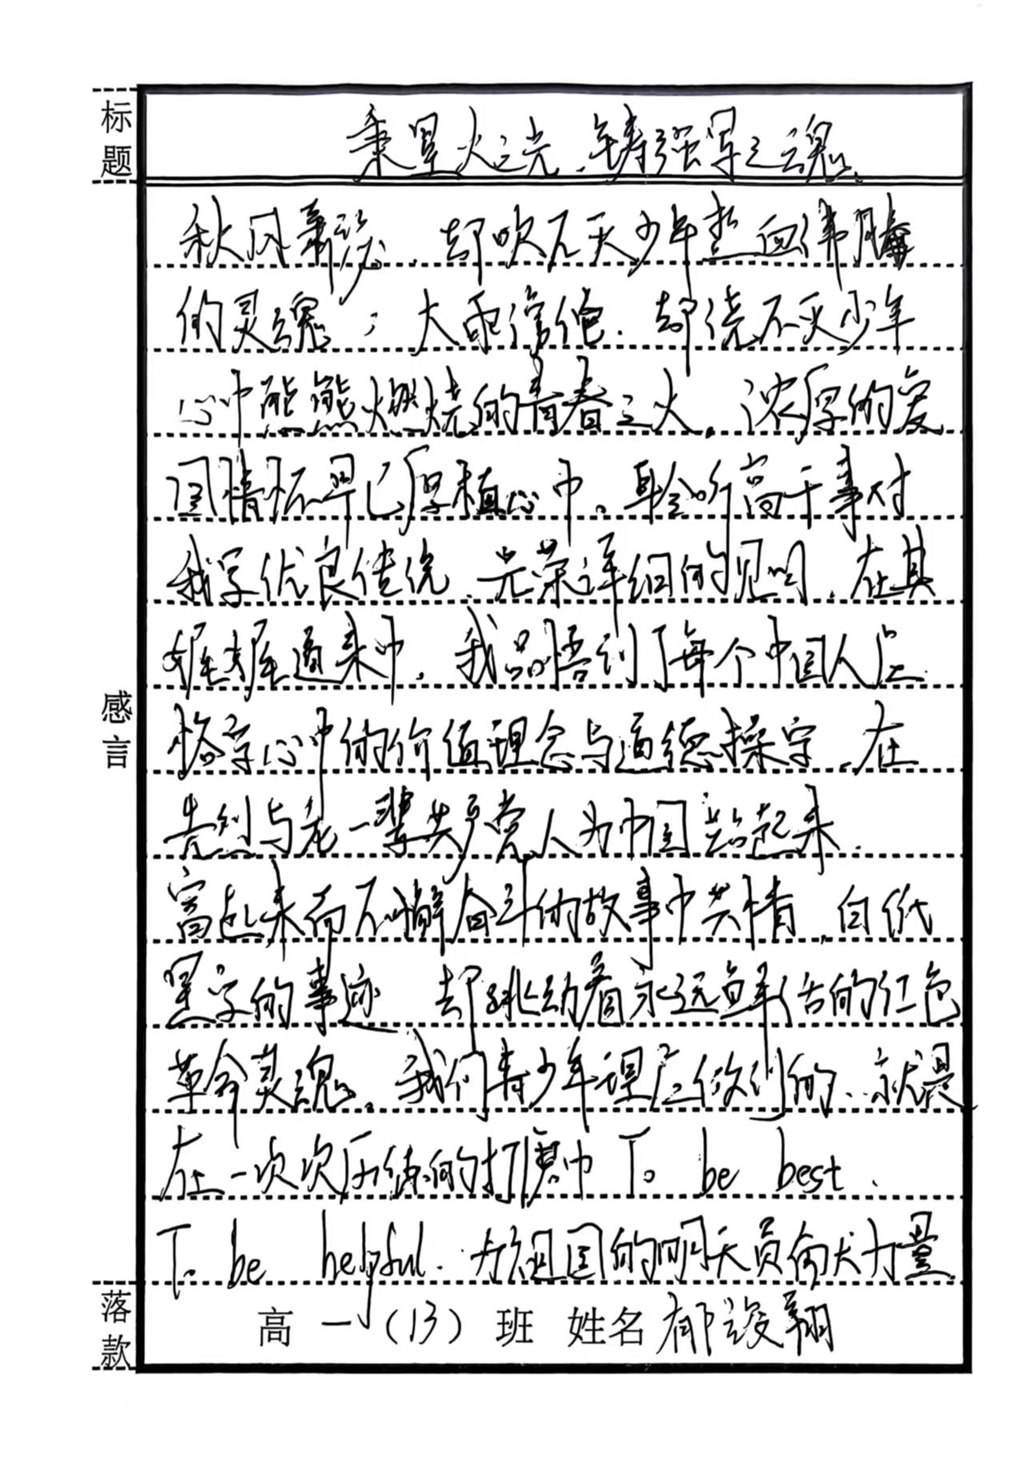 标题
秉星火之光，铸强军之魂
秋风萧瑟，却吹不灭少年热血沸腾
的灵魂；大雨滂沱，却浇不灭少年
心中熊熊燃烧的青春之火。浓厚的爱
国情怀早已厚植心中。聆听高干事对
我军优良传统、光荣详细的说明，在其
娓娓道来中，我品悟到了每个中国人应
恪守心中的价值理念与道德操守，在
先烈与老一辈共产党人为中国站起来、
富起来而不懈奋斗的故事中共情，白纸
黑字的事迹，却跳动着永远鲜活的红色
革命灵魂。我们青少年理应做到的，就是
在一次次历练的打磨中 To be best.
To be helpful. 为祖国的明天贡献力量
感言
落款
高一（13）班 姓名 郁浚翔